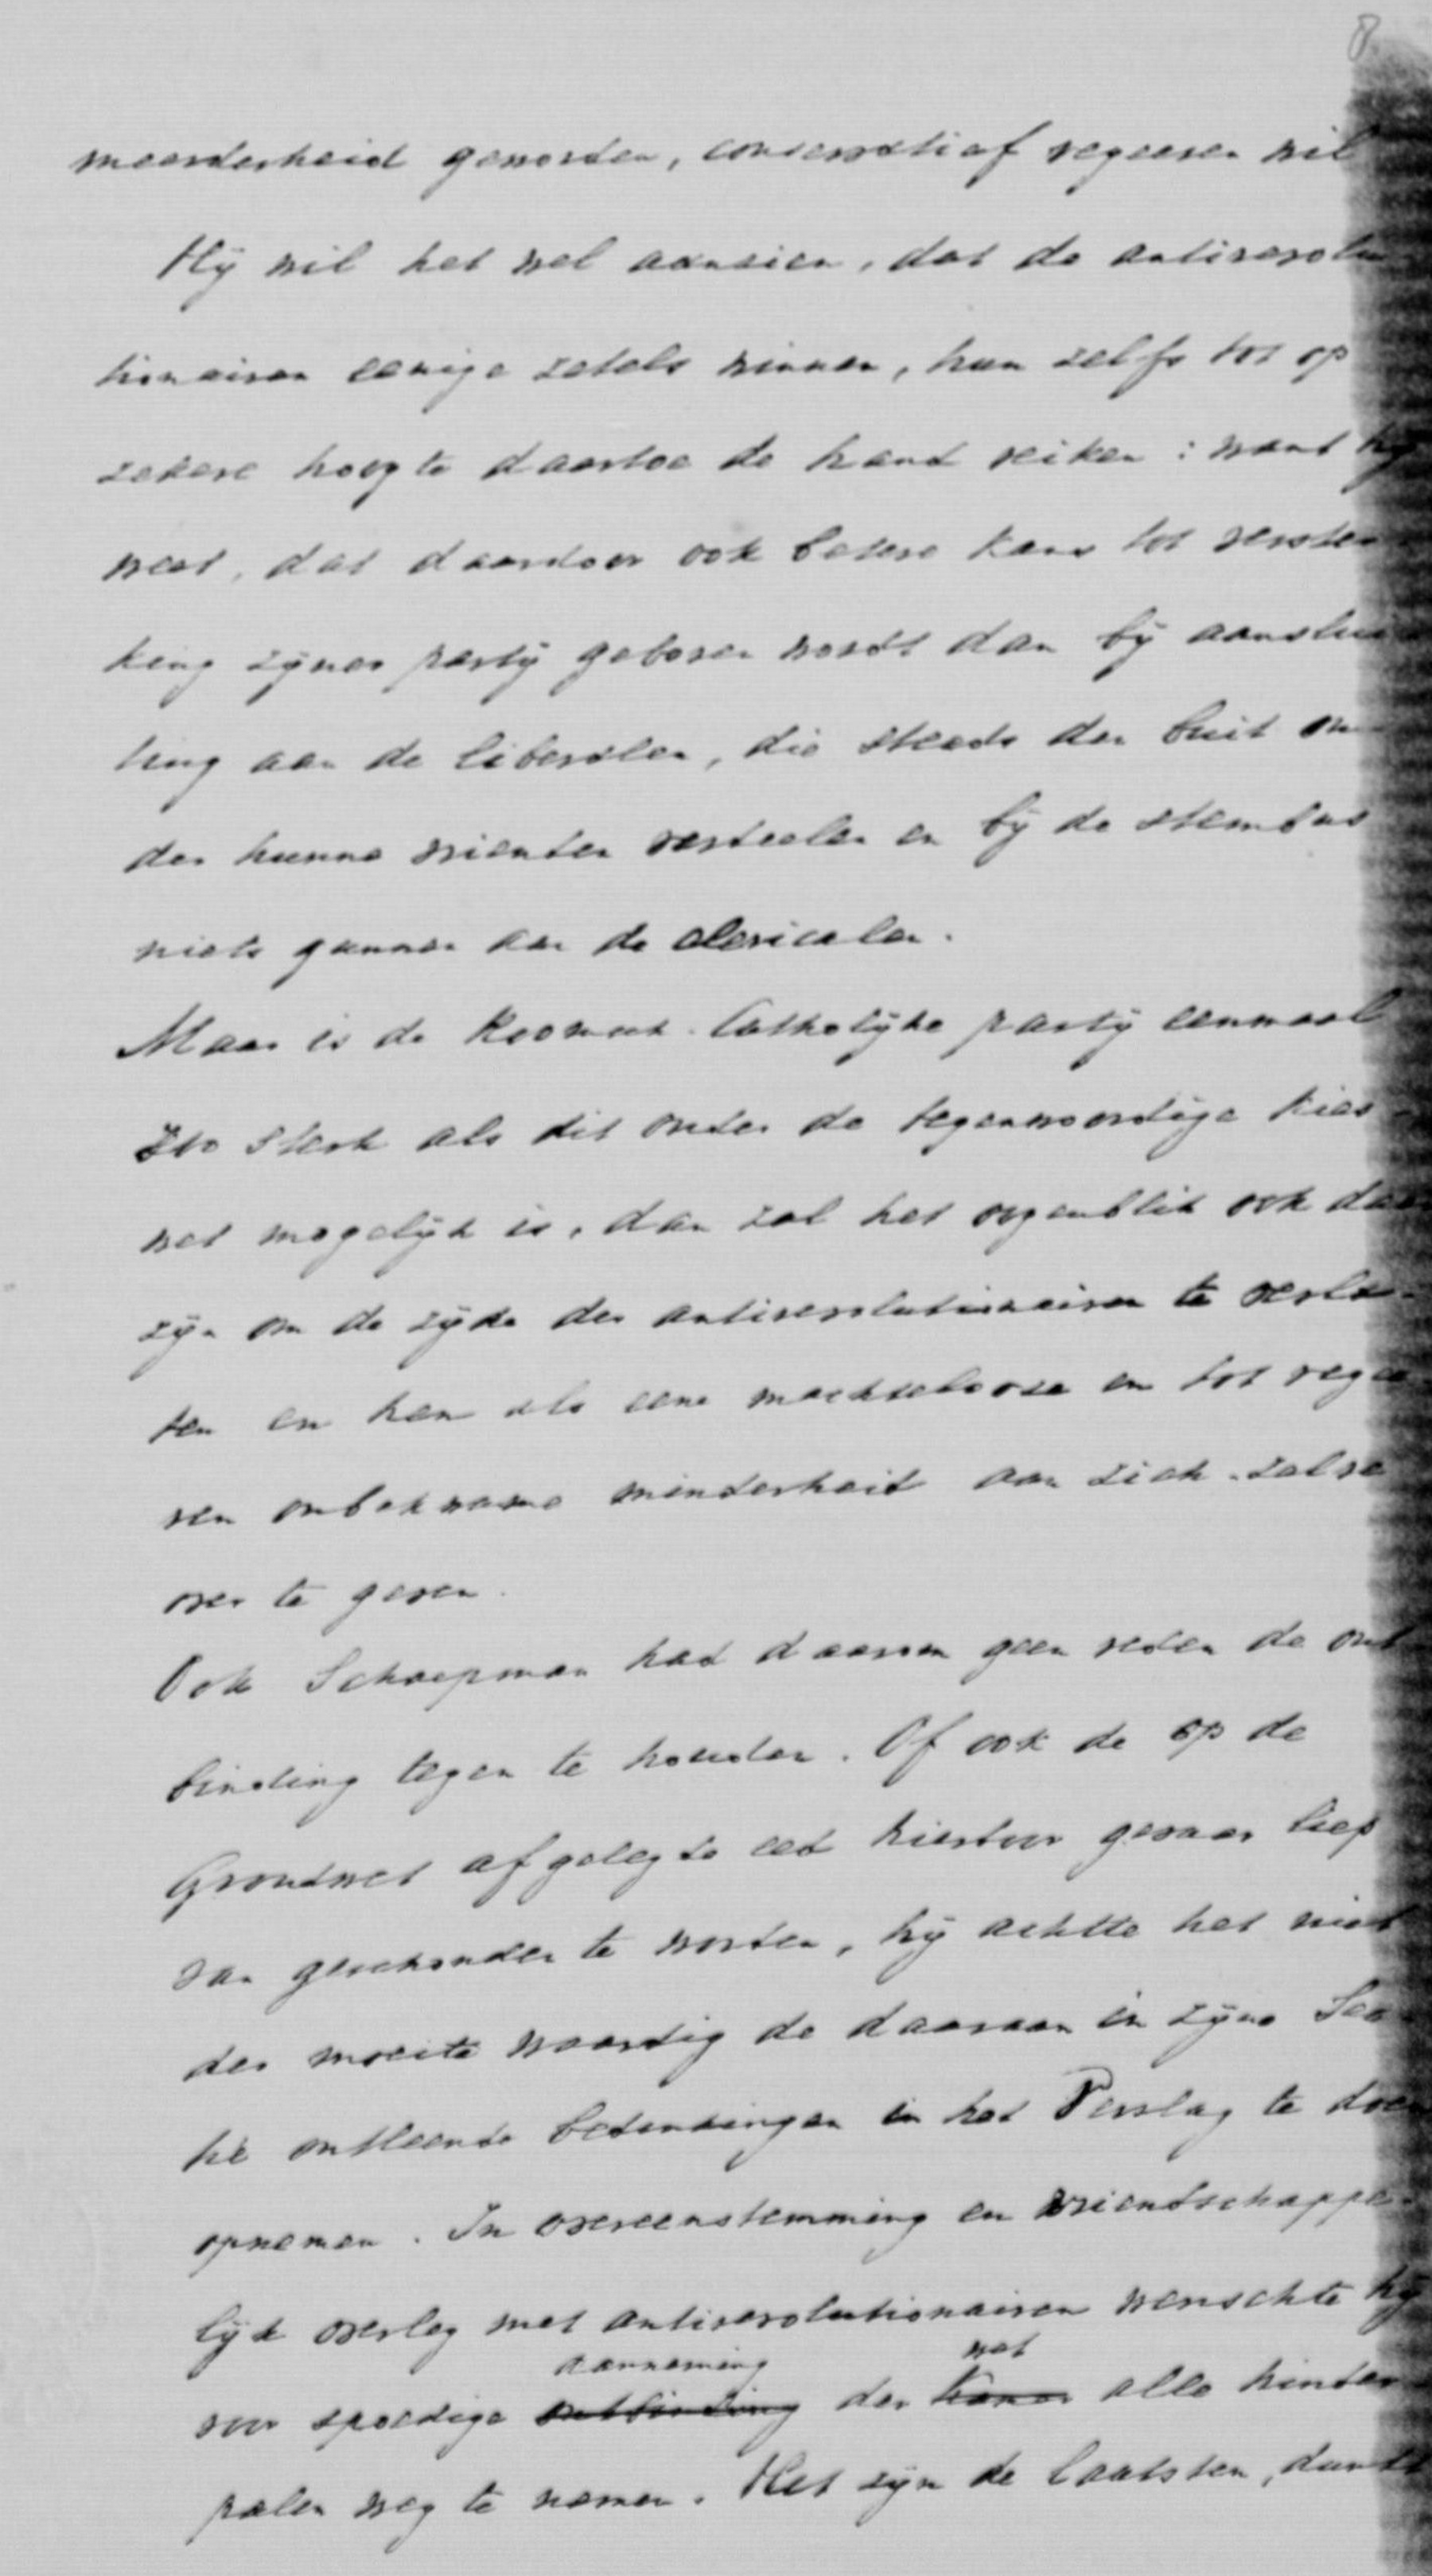 8.
meerderheid geworden, conservatief regeeren wil
Hij wil het wel aanzien, dat de antirevolu
tionairen eenige zetels winnen, hun zelfs tot op
zekere hoogte daartoe de hand reiken: want hij
weet, dat daardoor ook betere kans tot verster
king zijner partij geboren wordt dan bij aanslui
ting aan de liberalen, die steeds den buit on
der hunne vrienden verdeelen en bij de stembus
niets gunnen aan de clericalen.
Maar is de Roomsch-Catholijke partij eenmaal
zoo sterk als dit onder de tegenwoordige kies-
wet mogelijk is, dan zal het oogenblik ook daar
zijn om de zijde der antirevolutionairen te verla-
ten en hen als eene machtelooze en tot regee
ren onbekwame minderheid aan zich-zelve
over te geven.
Ook Schaepman had daarom geen reden de ont
binding tegen te houden. Of ook de op de
Grondwet afgelegde eed hierdoor gevaar liep
van geschonden te worden, hij achtte het niet
der moeite waardig de daaraan in zijne
ontleende bedenkingen in het Verslag te doen
opnemen. In overeenstemming en vriendschappe-
lijk overleg met antirevolutionairen wenschte hij
aanneming wet
voor spoedige ontbinding der Kamer alle hinder
palen weg te nemen. Het zijn de laatsten,